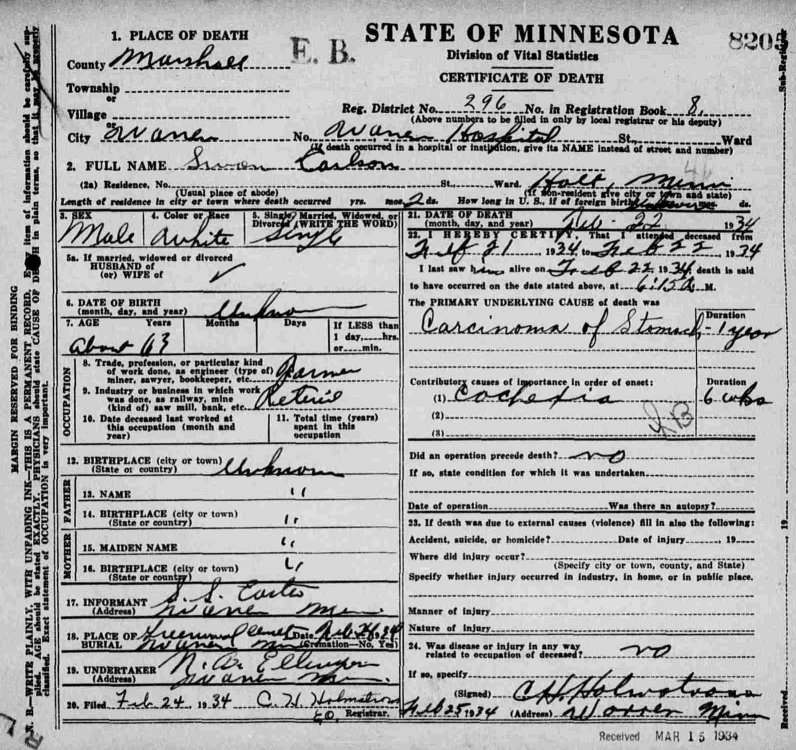 1. PLACE OF DEATH
STATE OF MINNESOTA
E. B.
8205
County Marshall
Division of Vital Statistics
CERTIFICATE OF DEATH
Township
or
Village
or
City Warren
Reg. District No. 296 No. in Registration Book 8
(Above numbers to be filled in only by local registrar or his deputy)
No. Warren Hospital St., Ward
(If death occurred in a hospital or institution, give its NAME instead of street and number)
2. FULL NAME Swan Carlson
(2a) Residence, No. St. Ward. Holt, Minn
(Usual place of abode) (If non-resident give city or town and state)
Length of residence in city or town where death occurred yrs. mos. 2 ds. How long in U. S., if of foreign birth? mos. ds.
3. SEX
Male
4. Color or Race
White
5. Single, Married, Widowed, or Divorced (WRITE THE WORD)
Single
5a. If married, widowed or divorced
HUSBAND of
(or) WIFE of
6. DATE OF BIRTH
(month, day, and year) Unknown
7. AGE Years Months Days
If LESS than 1 day,....hrs. or....min.
about 63
OCCUPATION
8. Trade, profession, or particular kind of work done, as engineer (type of) miner, sawyer, bookkeeper, etc. Farmer
9. Industry or business in which work was done, as railway, mine (kind of) saw mill, bank, etc.
10. Date deceased last worked at this occupation (month and year)
11. Total time (years) spent in this occupation
12. BIRTHPLACE (city or town) Unknown
(State or country)
FATHER
13. NAME "
14. BIRTHPLACE (city or town) "
(State or country)
MOTHER
15. MAIDEN NAME "
16. BIRTHPLACE (city or town) "
(State or country)
17. INFORMANT
(Address) Warren Minn.
18. PLACE OF BURIAL Greenwood Date Feb 24 1934
Warren Minn (Cremation—No, Yes)
19. UNDERTAKER
(Address) Warren Minn.
20. Filed Feb 24, 1934 C. H. Holmstrom
Registrar.
21. DATE OF DEATH
(month, day, and year) Feb - 22 1934
22. I HEREBY CERTIFY, That I attended deceased from
Feb 21 1934 to Feb 22, 1934
I last saw him alive on Feb 22 1934 death is said
to have occurred on the date stated above, at 6:15 a. M.
The PRIMARY UNDERLYING CAUSE of death was
Duration
Carcinoma of Stomach - 1 year
Contributory causes of importance in order of onset:
Duration
(1) Cachexia 6 wks
(2)
(3)
Did an operation precede death? no
If so, state condition for which it was undertaken
Date of operation Was there an autopsy?
23. If death was due to external causes (violence) fill in also the following:
Accident, suicide, or homicide? Date of injury , 19
Where did injury occur?
(Specify city or town, county, and State)
Specify whether injury occurred in industry, in home, or in public place.
Manner of injury
Nature of injury
24. Was disease or injury in any way related to occupation of deceased? no
If so, specify
(Signed) C. H. Holmstrom
Feb 25 1934 (Address) Warren Minn
Received MAR 15 1934
MARGIN RESERVED FOR BINDING
N. B.—WRITE PLAINLY, WITH UNFADING INK—THIS IS A PERMANENT RECORD. Every item of information should be carefully supplied. AGE should be stated EXACTLY. PHYSICIANS should state CAUSE OF DEATH in plain terms, so that it may be properly classified. Exact statement of OCCUPATION is very important.
Sub-Registrar
19
Received